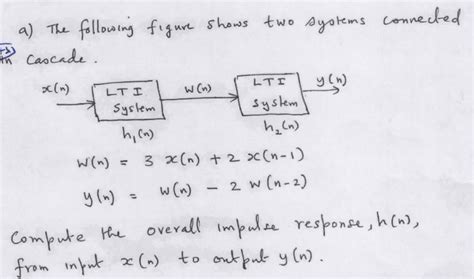 a) The following figure shows two systems connected
in cascade.
x(n) LTI System w(n) LTI System y(n)
h₁(n) h₂(n)
w(n) = 3 x(n) + 2 x(n-1)
y(n) = w(n) - 2 w(n-2)
Compute the overall impulse response, h(n),
from input x(n) to output y(n).